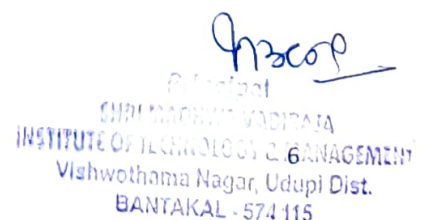 Principal
SHRI MADHWA VADIRAJA
INSTITUTE OF TECHNOLOGY & MANAGEMENT
6
Vishwothama Nagar, Udupi Dist.
BANTAKAL - 574 115